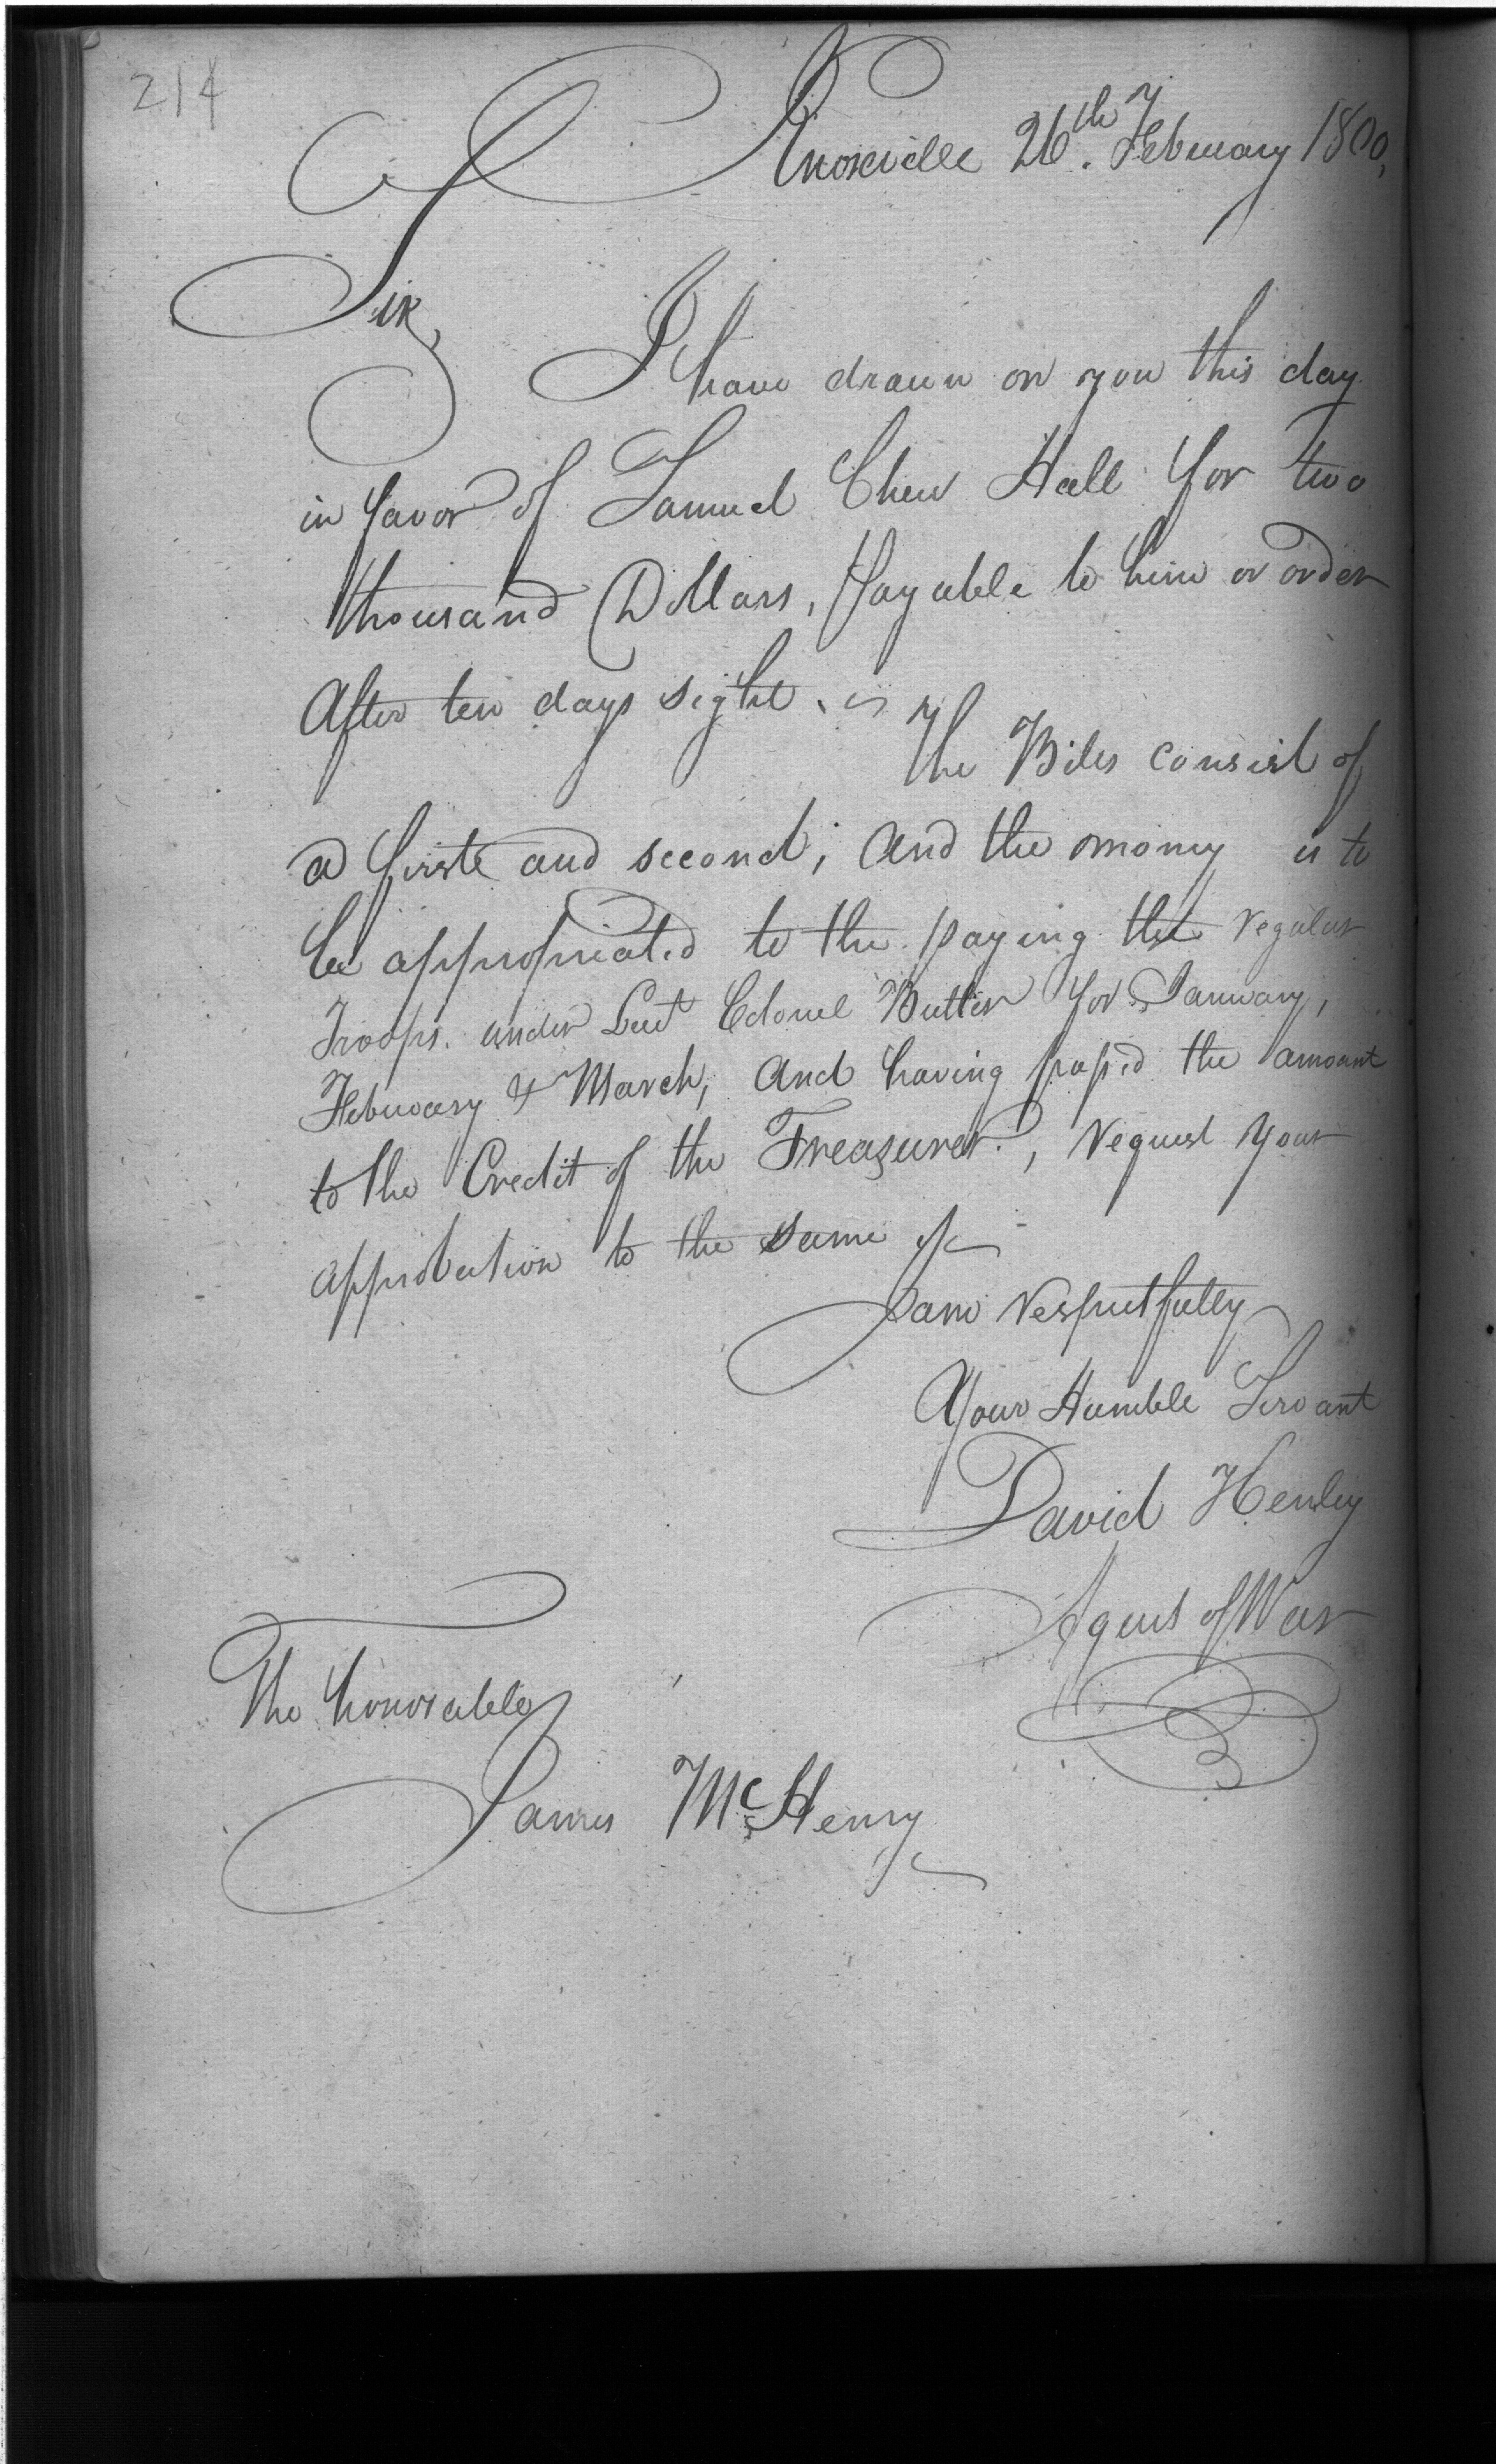 214
Knoxville 26th. February 1800,
Sir,
I have drawn on you this day
in favor of Samuel Chew Hall for two
thousand Dollars, payable to him or order
After ten days sight.
The Bills consist of
a firste and second; And the money is to
be appropriated to the paying the regular
Troops. under Leut Colonel Butler for January,
February & March, And having pass'd the amount
to the Credit of the Treasurer, request your
approbation to the same
I am respectfully
Your Humble Servant
David Henley
Agent of War
The honorable
James McHenry